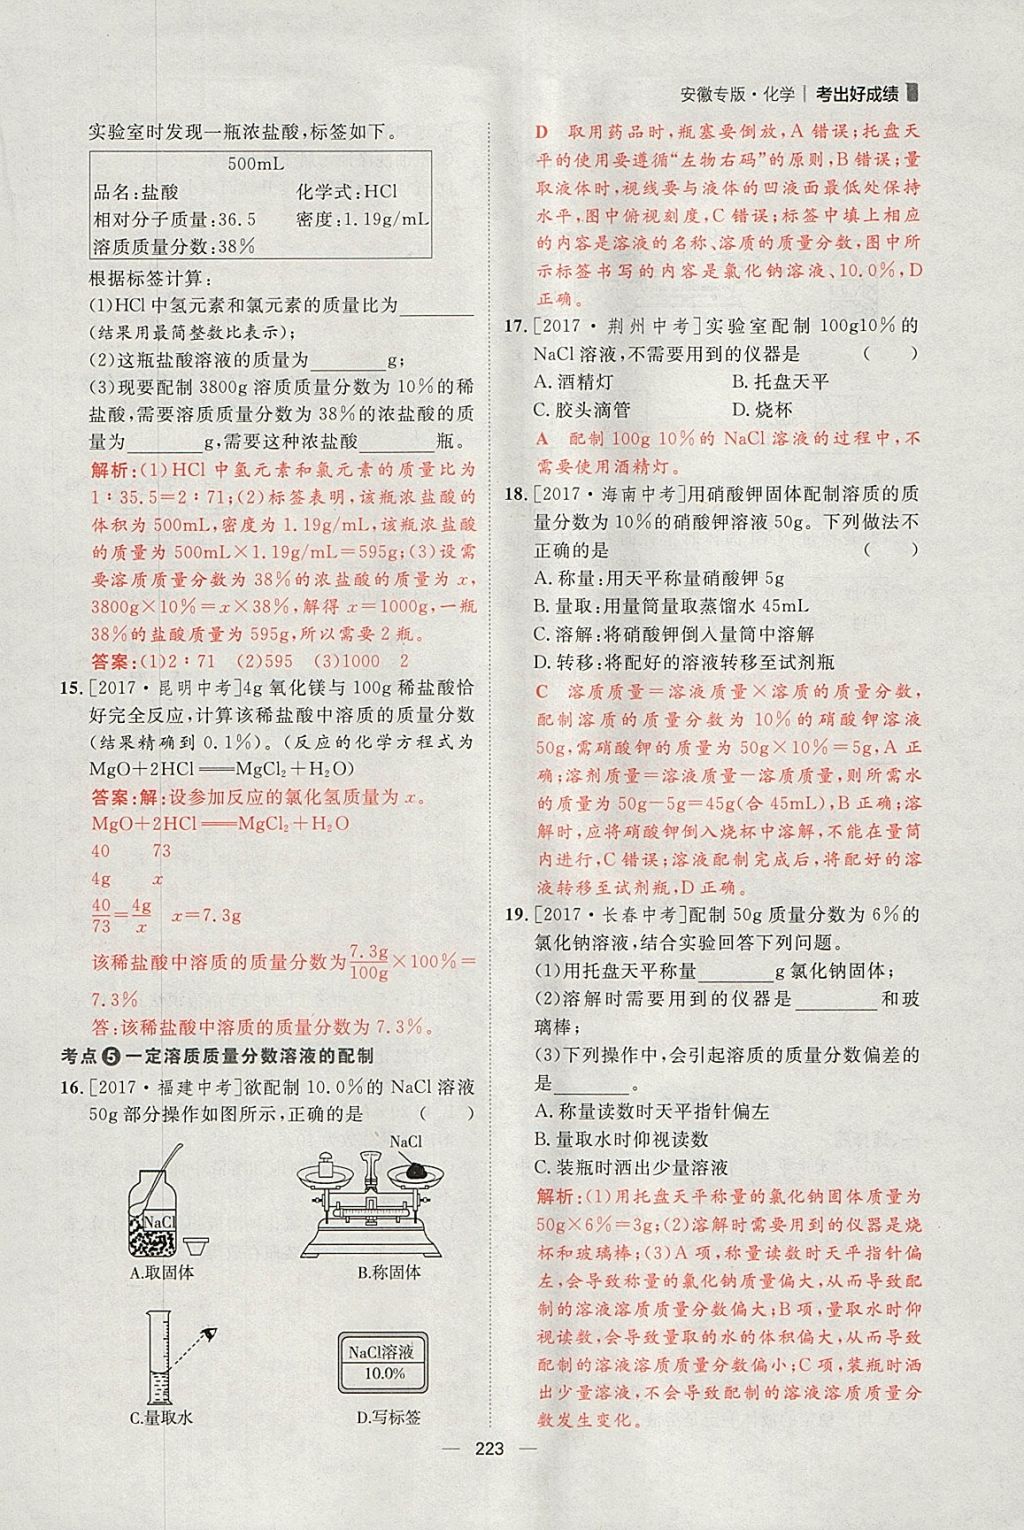 安徽专版·化学 考出好成绩
实验室时发现一瓶浓盐酸,标签如下。
500mL
品名:盐酸 化学式:HCl
相对分子质量:36.5 密度:1.19g/mL
溶质质量分数:38%
根据标签计算:
(1)HCl中氢元素和氯元素的质量比为________
(结果用最简整数比表示);
(2)这瓶盐酸溶液的质量为________g;
(3)现要配制3800g溶质质量分数为10%的稀
盐酸,需要溶质质量分数为38%的浓盐酸的质
量为________g,需要这种浓盐酸________瓶。
解析:(1)HCl中氢元素和氯元素的质量比为
1∶35.5=2∶71;(2)标签表明,该瓶浓盐酸的
体积为500mL,密度为1.19g/mL,该瓶浓盐酸
的质量为500mL×1.19g/mL=595g;(3)设需
要溶质质量分数为38%的浓盐酸的质量为x,
3800g×10%=x×38%,解得x=1000g,一瓶
38%的盐酸质量为595g,所以需要2瓶。
答案:(1)2∶71 (2)595 (3)1000 2
15.[2017·昆明中考]4g氧化镁与100g稀盐酸恰
好完全反应,计算该稀盐酸中溶质的质量分数
(结果精确到0.1%)。(反应的化学方程式为
MgO+2HCl══MgCl₂+H₂O)
答案:解:设参加反应的氯化氢质量为x。
MgO+2HCl══MgCl₂+H₂O
40 73
4g x
40/73=4g/x x=7.3g
该稀盐酸中溶质的质量分数为7.3g/100g×100%=
7.3%
答:该稀盐酸中溶质的质量分数为7.3%。
考点5 一定溶质质量分数溶液的配制
16.[2017·福建中考]欲配制10.0%的NaCl溶液
50g部分操作如图所示,正确的是 ( )
NaCl
NaCl
A.取固体 B.称固体
NaCl溶液
10.0%
C.量取水 D.写标签
D 取用药品时,瓶塞要倒放,A错误;托盘天
平的使用要遵循“左物右码”的原则,B错误;量
取液体时,视线要与液体的凹液面最低处保持
水平,图中俯视刻度,C错误;标签中填上相应
的内容是溶液的名称、溶质的质量分数,图中所
示标签书写的内容是氯化钠溶液、10.0%,D
正确。
17.[2017·荆州中考]实验室配制100g10%的
NaCl溶液,不需要用到的仪器是 ( )
A.酒精灯 B.托盘天平
C.胶头滴管 D.烧杯
A 配制100g 10%的NaCl溶液的过程中,不
需要使用酒精灯。
18.[2017·海南中考]用硝酸钾固体配制溶质的质
量分数为10%的硝酸钾溶液50g。下列做法不
正确的是 ( )
A.称量:用天平称量硝酸钾5g
B.量取:用量筒量取蒸馏水45mL
C.溶解:将硝酸钾倒入量筒中溶解
D.转移:将配好的溶液转移至试剂瓶
C 溶质质量=溶液质量×溶质的质量分数,
配制溶质的质量分数为10%的硝酸钾溶液
50g,需硝酸钾的质量为50g×10%=5g,A正
确;溶剂质量=溶液质量-溶质质量,则所需水
的质量为50g-5g=45g(合45mL),B正确;溶
解时,应将硝酸钾倒入烧杯中溶解,不能在量筒
内进行,C错误;溶液配制完成后,将配好的溶
液转移至试剂瓶,D正确。
19.[2017·长春中考]配制50g质量分数为6%的
氯化钠溶液,结合实验回答下列问题。
(1)用托盘天平称量________g氯化钠固体;
(2)溶解时需要用到的仪器是________和玻
璃棒;
(3)下列操作中,会引起溶质的质量分数偏差的
是________。
A.称量读数时天平指针偏左
B.量取水时仰视读数
C.装瓶时洒出少量溶液
解析:(1)用托盘天平称量的氯化钠固体质量为
50g×6%=3g;(2)溶解时需要用到的仪器是烧
杯和玻璃棒;(3)A项,称量读数时天平指针偏
左,会导致称量的氯化钠质量偏大,从而导致配
制的溶液溶质质量分数偏大;B项,量取水时仰
视读数,会导致量取的水的体积偏大,从而导致
配制的溶液溶质质量分数偏小;C项,装瓶时洒
出少量溶液,不会导致配制的溶液溶质质量分
数发生变化。
— 223 —